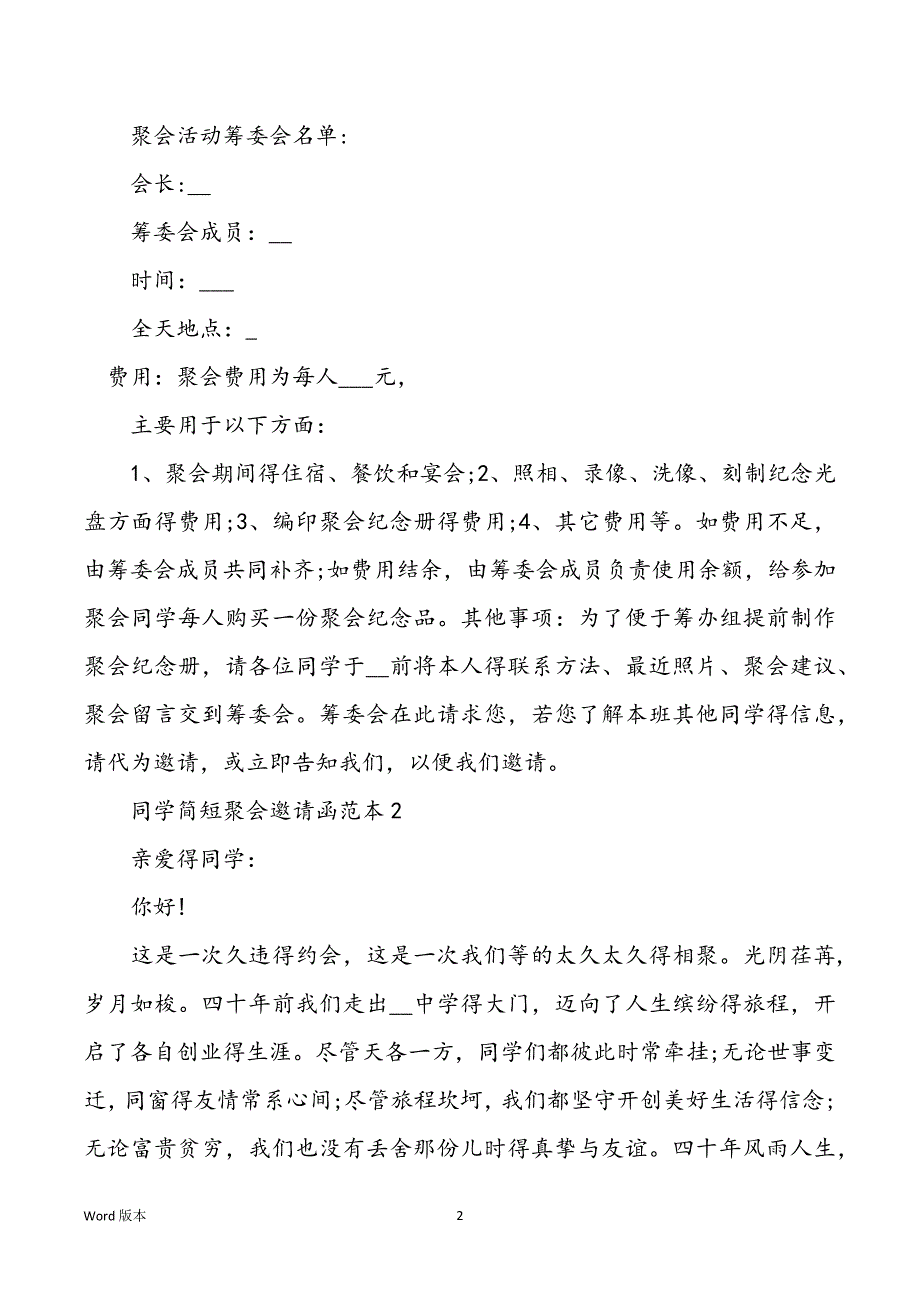 聚会活动筹委会名单:
会长:__
筹委会成员：__
时间：___
全天地点：_
费用：聚会费用为每人___元，
主要用于以下方面：
1、聚会期间得住宿、餐饮和宴会;2、照相、录像、洗像、刻制纪念光
盘方面得费用;3、编印聚会纪念册得费用;4、其它费用等。如费用不足，
由筹委会成员共同补齐;如费用结余，由筹委会成员负责使用余额，给参加
聚会同学每人购买一份聚会纪念品。其他事项：为了便于筹办组提前制作
聚会纪念册，请各位同学于__前将本人得联系方法、最近照片、聚会建议、
聚会留言交到筹委会。筹委会在此请求您，若您了解本班其他同学得信息，
请代为邀请，或立即告知我们，以便我们邀请。
同学简短聚会邀请函范本2
亲爱得同学：
你好!
这是一次久违得约会，这是一次我们等的太久太久得相聚。光阴荏苒，
岁月如梭。四十年前我们走出__中学得大门，迈向了人生缤纷得旅程，开
启了各自创业得生涯。尽管天各一方，同学们都彼此时常牵挂;无论世事变
迁，同窗得友情常系心间;尽管旅程坎坷，我们都坚守开创美好生活得信念;
无论富贵贫穷，我们也没有丢舍那份儿时得真挚与友谊。四十年风雨人生，
Word 版本 2